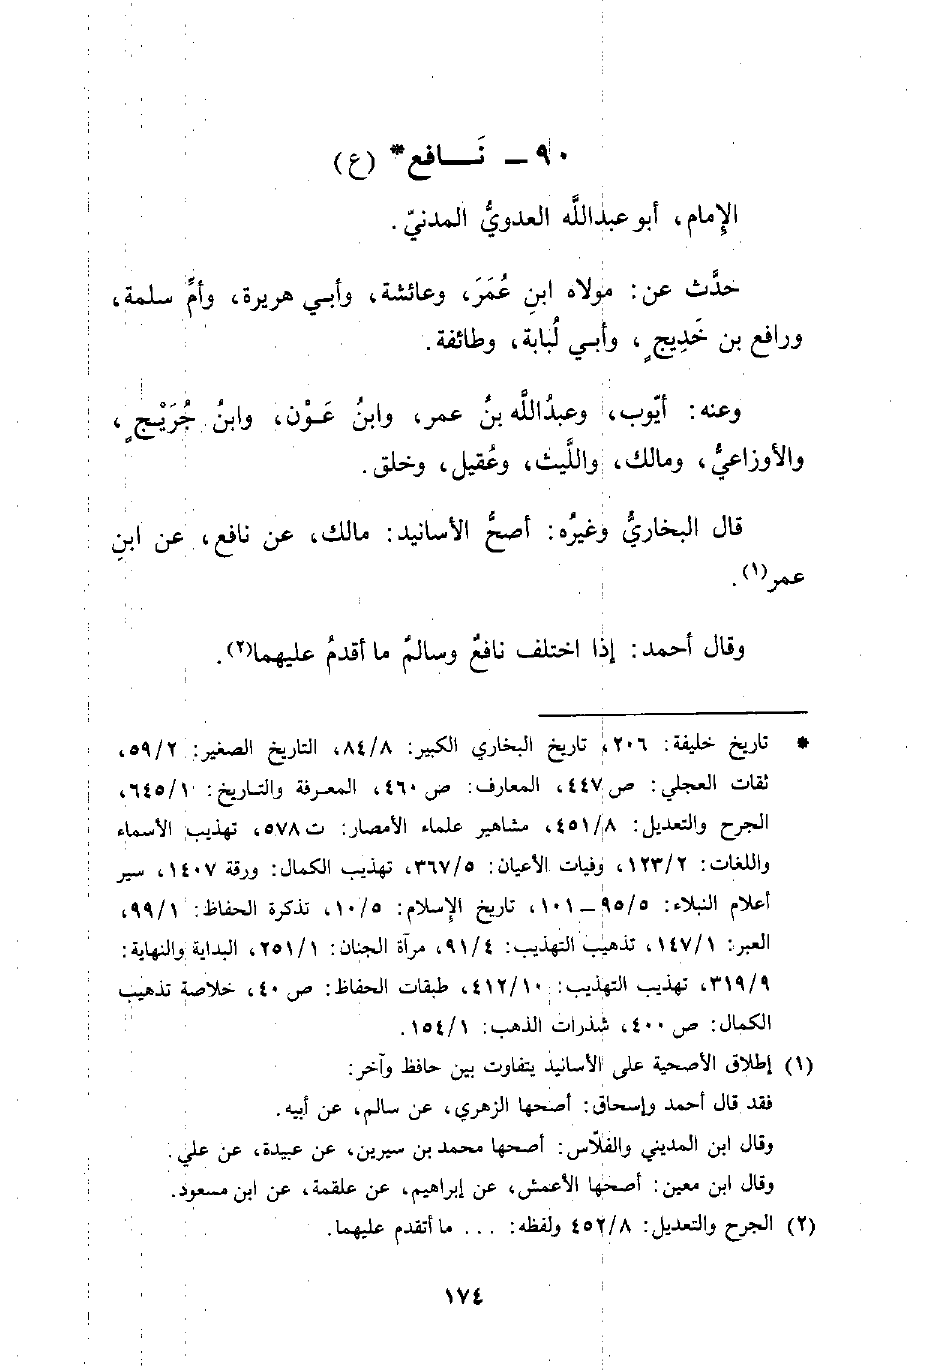 ٩٠ ـ نَـــافع* (ع)
الإِمام، أبو عبدالله العدويُّ المدنيّ.
حدَّث عن: مولاه ابنِ عُمَرَ، وعائشة، وأبـي هريرة، وأمِّ سلمة،
ورافع بن خَدِيجٍ، وأبـي لُبابة، وطائفة.
وعنه: أيّوب، وعبدُاللَّه بنُ عمر، وابنُ عَـوْن، وابنُ جُرَيْـجٍ،
والأوزاعيُّ، ومالك، واللَّيث، وعُقيل، وخلق.
قال البخاريُّ وغيرُه: أصحُّ الأسانيد: مالك، عن نافع، عن ابنِ
عمر(١).
وقال أحمد: إذا اختلف نافعٌ وسالمٌ ما أقدمُ عليهما(٢).
* تاريخ خليفة: ٢٠٦، تاريخ البخاري الكبير: ٨٤/٨، التاريخ الصغير: ٥٩/٢،
ثقات العجلي: ص ٤٤٧، المعارف: ص ٤٦٠، المعـرفة والتـاريخ: ٦٤٥/١،
الجرح والتعديل: ٤٥١/٨، مشاهير علماء الأمصار: ت ٥٧٨، تهذيب الأسماء
واللغات: ١٢٣/٢، وفيات الأعيان: ٣٦٧/٥، تهذيب الكمال: ورقة ١٤٠٧، سير
أعلام النبلاء: ٩٥/٥ ـ ١٠١، تاريخ الإسلام: ١٠/٥، تذكرة الحفاظ: ٩٩/١،
العبر: ١٤٧/١، تذهيب التهذيب: ٩١/٤، مرآة الجنان: ٢٥١/١، البداية والنهاية:
٣١٩/٩، تهذيب التهذيب: ٤١٢/١٠، طبقات الحفاظ: ص ٤٠، خلاصة تذهيب
الكمال: ص ٤٠٠، شذرات الذهب: ١٥٤/١.
(١) إطلاق الأصحية على الأسانيد يتفاوت بين حافظ وآخر:
فقد قال أحمد وإسحاق: أصحها الزهري، عن سالم، عن أبيه.
وقال ابن المديني والفلّاس: أصحها محمد بن سيرين، عن عبيدة، عن علي.
وقال ابن معين: أصحها الأعمش، عن إبراهيم، عن علقمة، عن ابن مسعود.
(٢) الجرح والتعديل: ٤٥٢/٨ ولفظه: ... ما أتقدم عليهما.
١٧٤